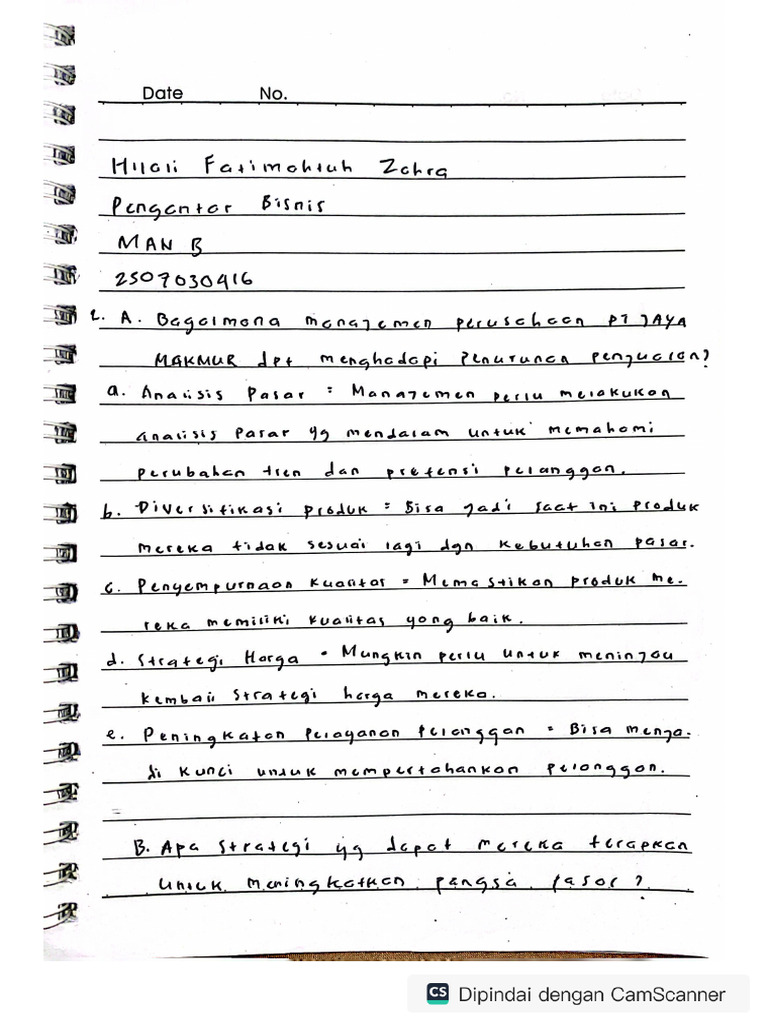 Date No.
Hilali Fatimahtuh Zahra
Pengantar Bisnis
MAN B
2507030416
1. A. Bagaimana manajemen perusahaan PT JAYA
MAKMUR dpt menghadapi Penurunan Penjualan?
a. Analisis Pasar = Manajemen perlu melakukan
analisis Pasar yg mendalam untuk memahami
perubahan tren dan pretensi pelanggan.
b. Diversifikasi produk = Bisa jadi saat ini produk
mereka tidak sesuai lagi dgn kebutuhan pasar.
c. Penyempurnaan kualitas = Memastikan produk me-
reka memiliki kualitas yang baik.
d. Strategi Harga = Mungkin perlu untuk meninjau
kembali strategi harga mereka.
e. Peningkatan Pelayanan Pelanggan = Bisa menja-
di kunci untuk mempertahankan pelanggan.
B. Apa strategi yg dapat mereka terapkan
untuk meningkatkan pangsa pasar?
CS Dipindai dengan CamScanner